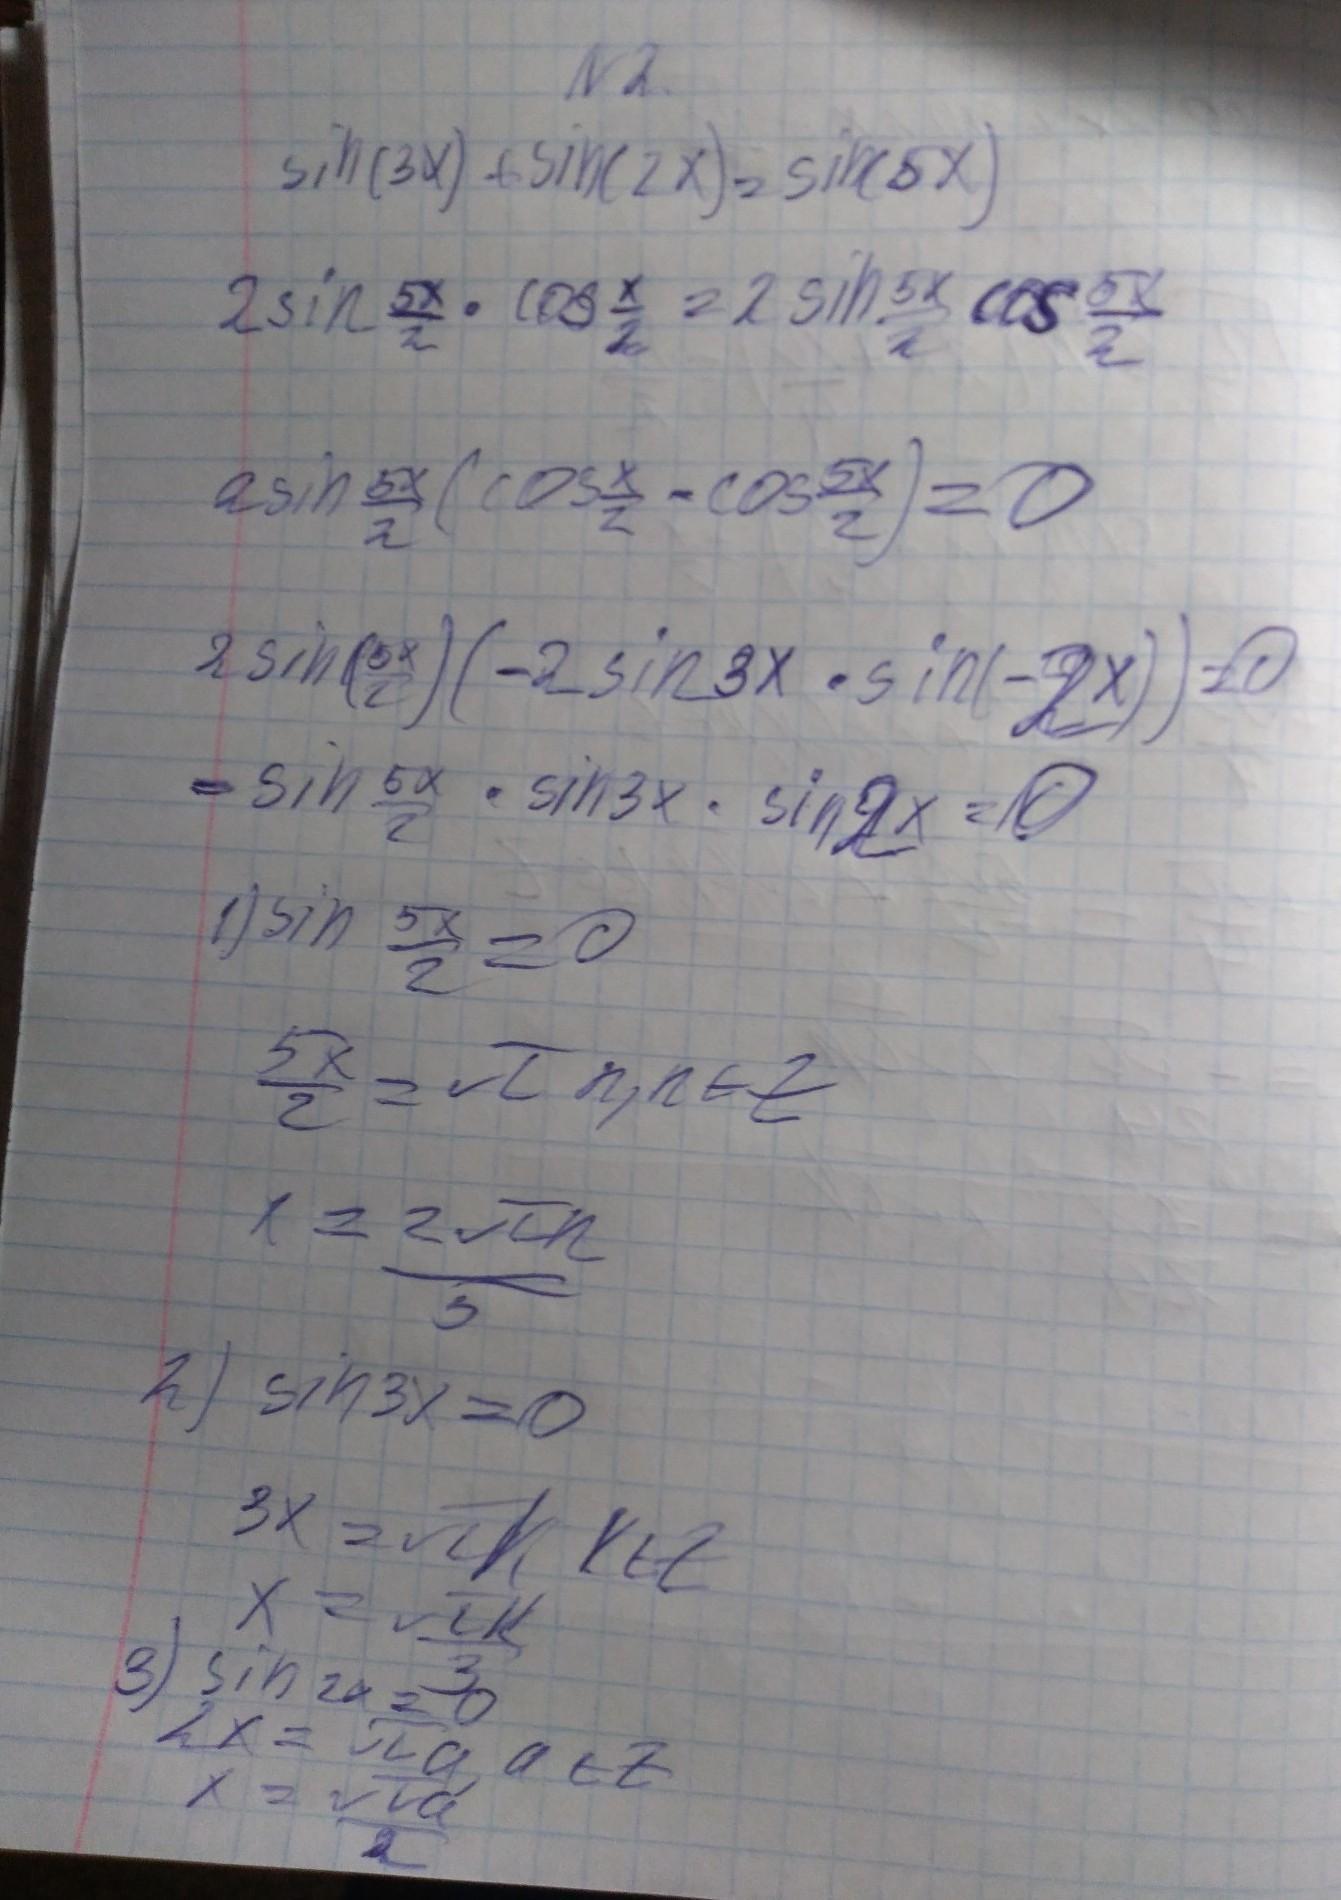 N2.
sin(3x) + sin(2x) = sin(5x)
2 sin 5x/2 · cos x/2 = 2 sin 5x/2 cos 5x/2
2 sin 5x/2 (cos x/2 - cos 5x/2) = 0
2 sin(5x/2)(-2 sin 3x · sin(-2x)) = 0
- sin 5x/2 · sin 3x · sin 2x = 0
1) sin 5x/2 = 0
5x/2 = πn, n ∈ Z
x = 2πn/5
2) sin 3x = 0
3x = πk, k ∈ Z
x = πk/3
3) sin 2x = 0
2x = πa, a ∈ Z
x = πa/2